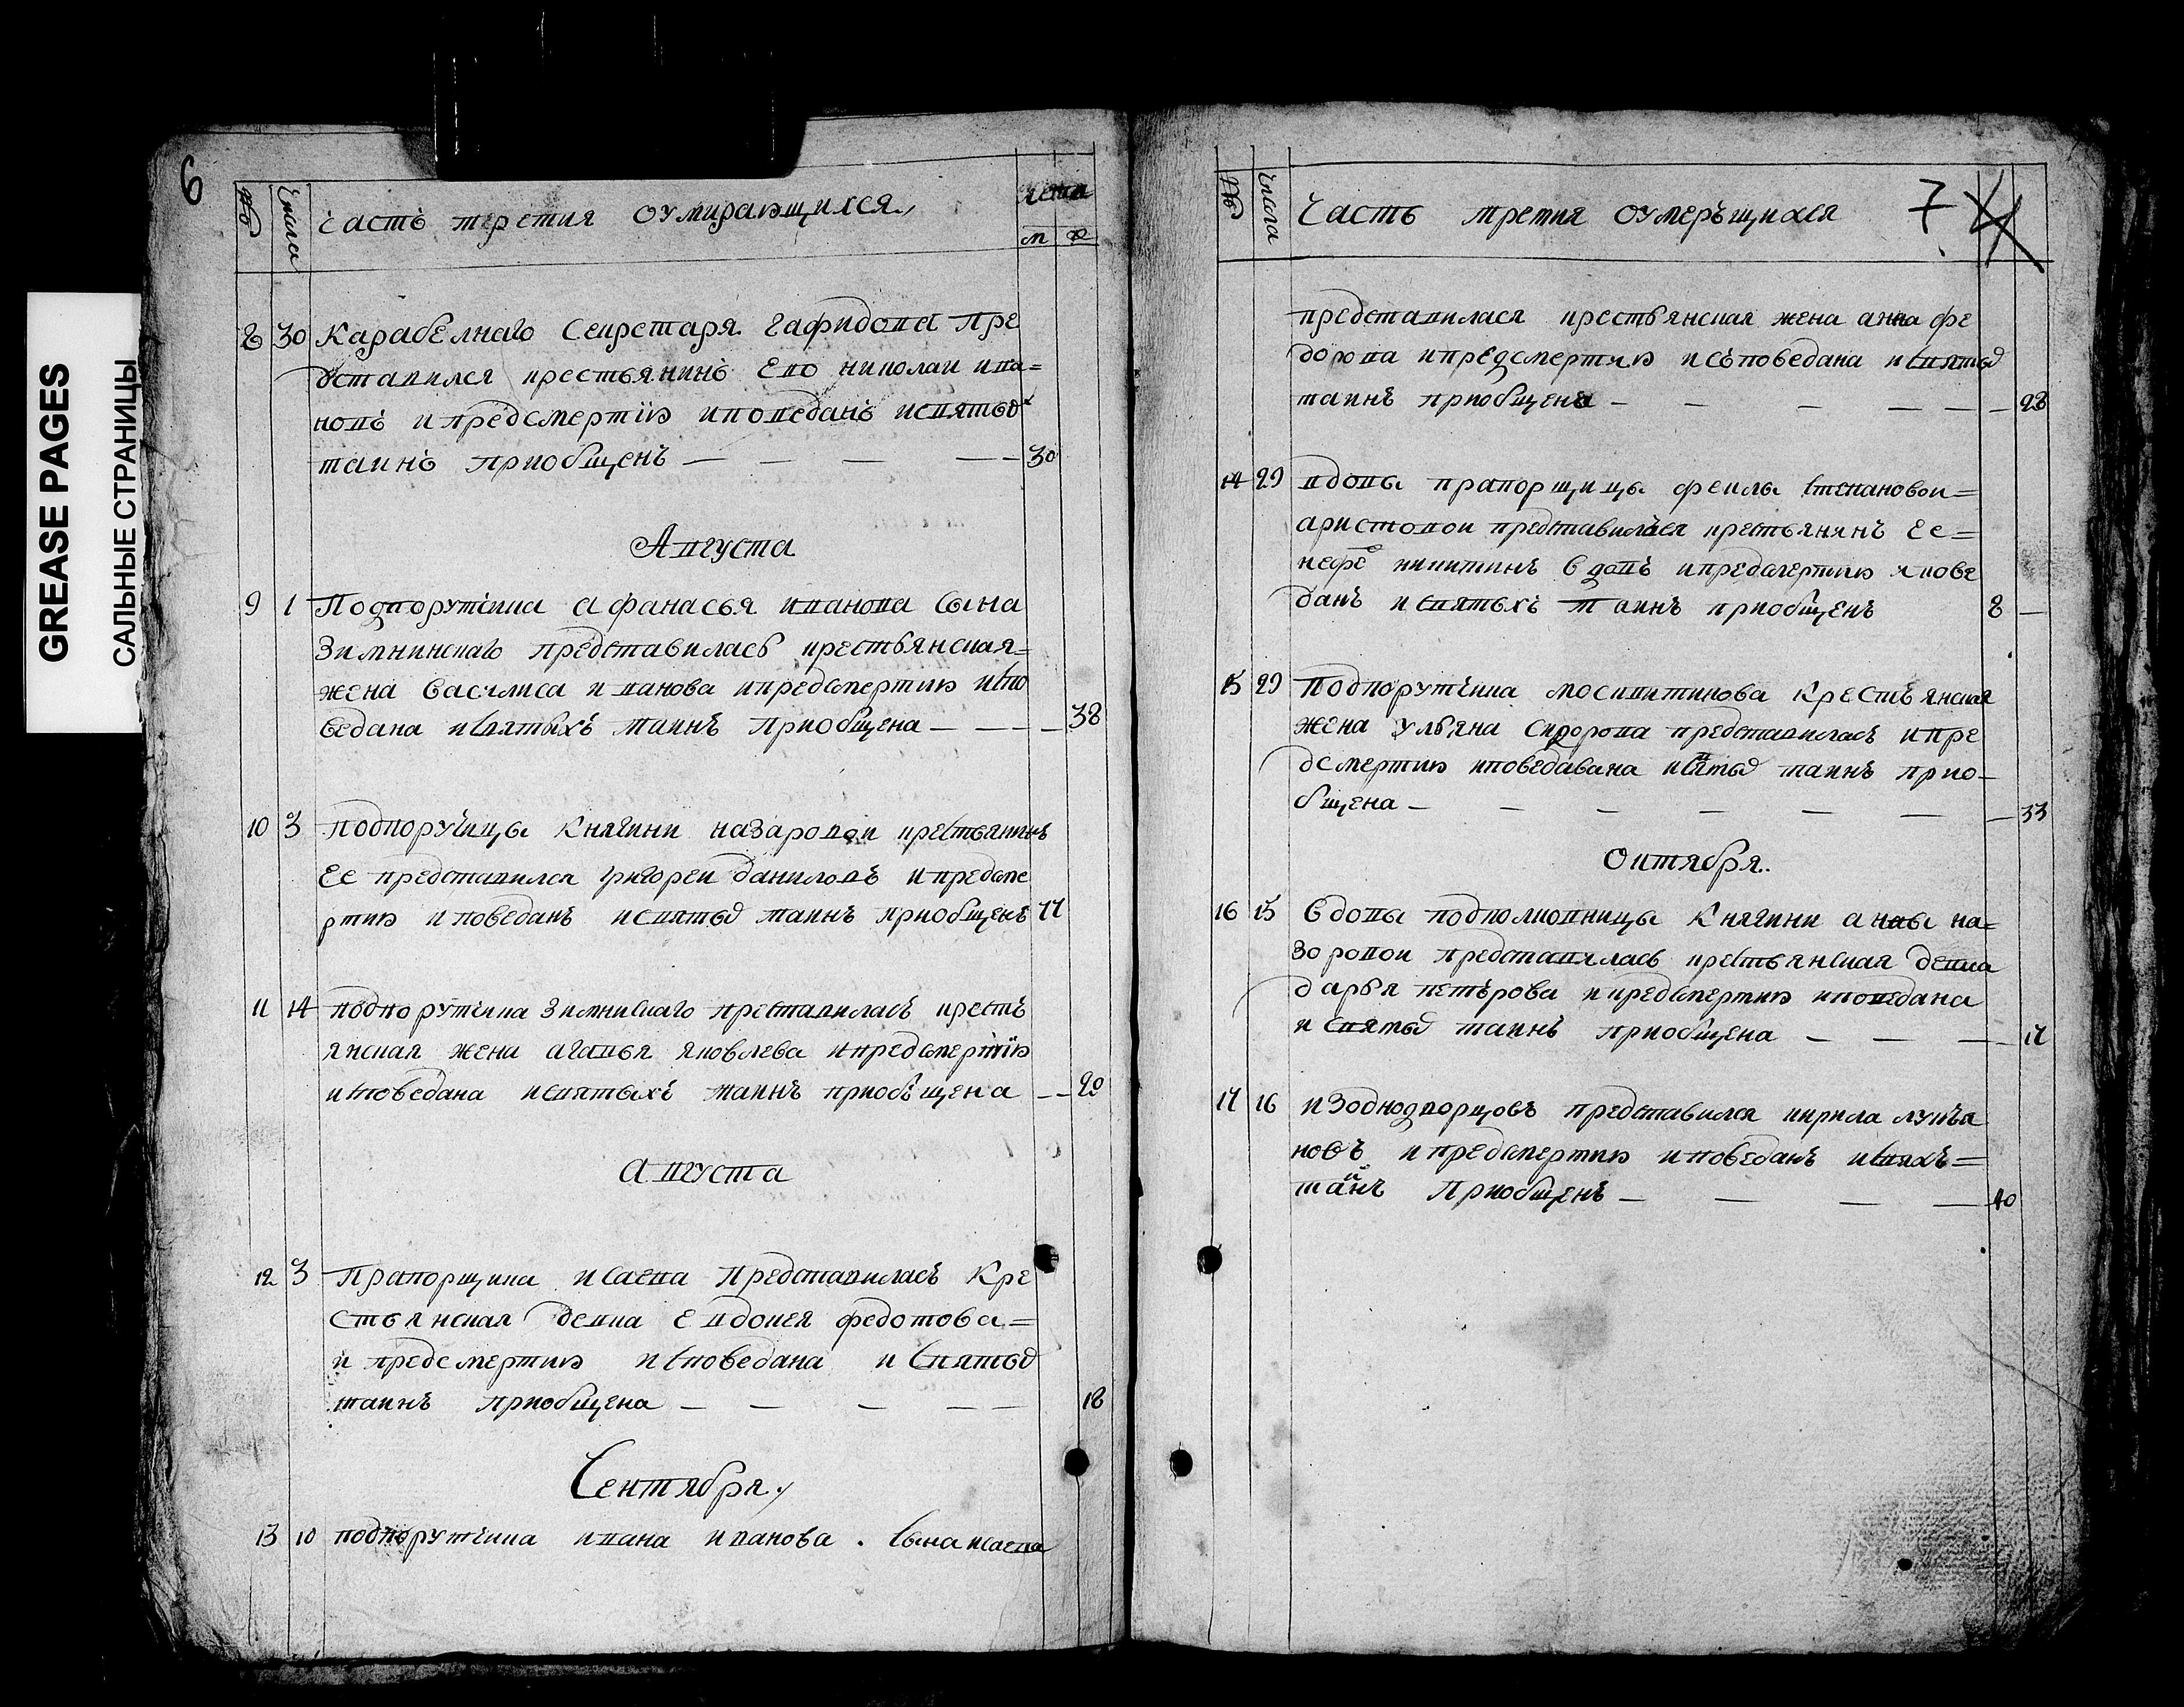 GREASE PAGES
САЛЬНЫЕ СТРАНИЦЫ
6
№ Числа часть третия оумирающихся лета
м ж
8 30 Карабелнаго Секретаря Гафидова пре
дставился крестьянинъ Ево николаи ива=
новъ и предсмертию иповеданъ исвятыхъ
таинъ приобщенъ — — — — 30
Августа
9 1 Подпорутчика афанасья иванова сына
Зимнинскаго представилась крестьянская=
жена Василиса иванова ипредсмертию испо
ведана исвятыхъ таинъ приобщена — — — — 38
10 3 подпоручицы Княгини назаровои крестьянинъ
Ее представился григореи даниловъ ипредсме
ртию иповеданъ исвятыхъ таинъ приобщенъ 77
11 14 подпорутчика Зимнискаго преставилась кресть
янская жена агафья яковлева ипредсмертию
исповедана исвятыхъ таинъ приобщена — — 20
августа
12 3 Прапорщика исаева Представилась Кре
стьянская девка Евдокея федотова=
и предсмертию исповедана и святыхъ
таинъ приобщена — — — — — 18
Сентября
13 10 подпорутчика ивана иванова сына исаева
№ числа Часть третия оумерьщихся 7 4
представилася крестьянская жена анна фе
дорова ипредсмертию исьповедана исвятыхъ
таинъ приобщена — — — — — — 28
14 29 вдовы прапорщицы феклы степановои=
аристовои представился крестьянинъ Ее=
никитинъ вдовъ ипредсмертию упове
данъ исвятыхъ таинъ приобщенъ 8 —
15 29 Подпорутчика москвитинова Крестьянская
жена ульяна Сидорова представилась ипре
дсмертию иповедавана исвятыхъ таинъ прио-
бщена — — — — — — — 33
Октября
16 15 Вдовы подполковницы Княгини анны на=
зоровои представялась крестьянская девка
дарья петърова ипредсмертию иповедана
и святыхъ таинъ приобщена — — — — 17
17 16 изоднодворцовъ представился кирила лукъя
новъ ипредсмертию иповеданъ исвяхъ=
таинъ Приобщенъ — — — — 40